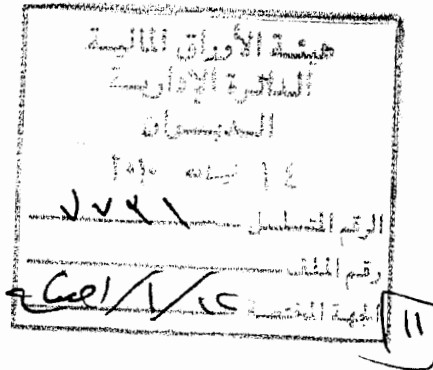 هيئة الأوراق المالية
الدائرة الإدارية
الديـــوان
١٤ نيسان ٢٠١٠
الرقم المتسلسل
رقم الملف
الجهة المختصة
١١